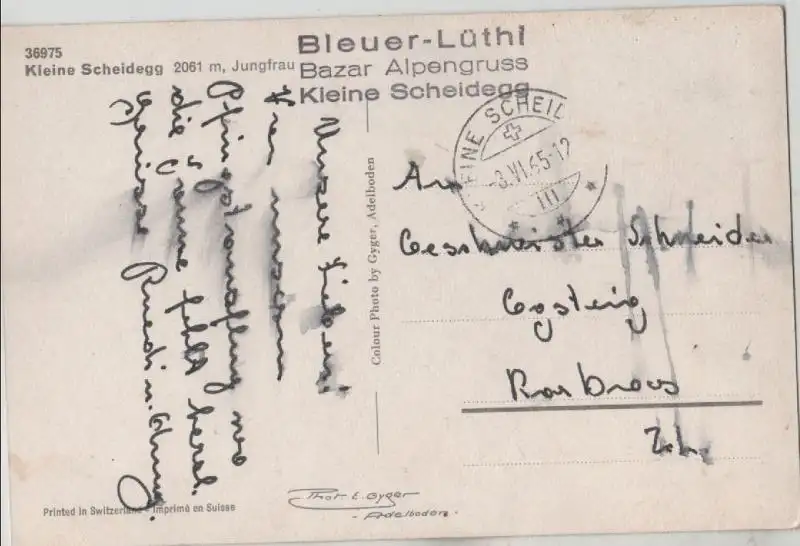 36975
Kleine Scheidegg 2061 m, Jungfrau
Bleuer-Lüthi
Bazar Alpengruss
Kleine Scheidegg
KLEINE SCHEID
-3.VI.65-12
Unsere Lieben!
von unserem
Pfingstausflug wo
die Sonne fehlt herzl.
Grüsse Ruedi u.
Colour Photo by Gyger, Adelboden
An
Geschwister Schneider
Gsteig
Zch.
Printed in Switzerland - Imprimé en Suisse
Phot E. Gyger
- Adelboden -